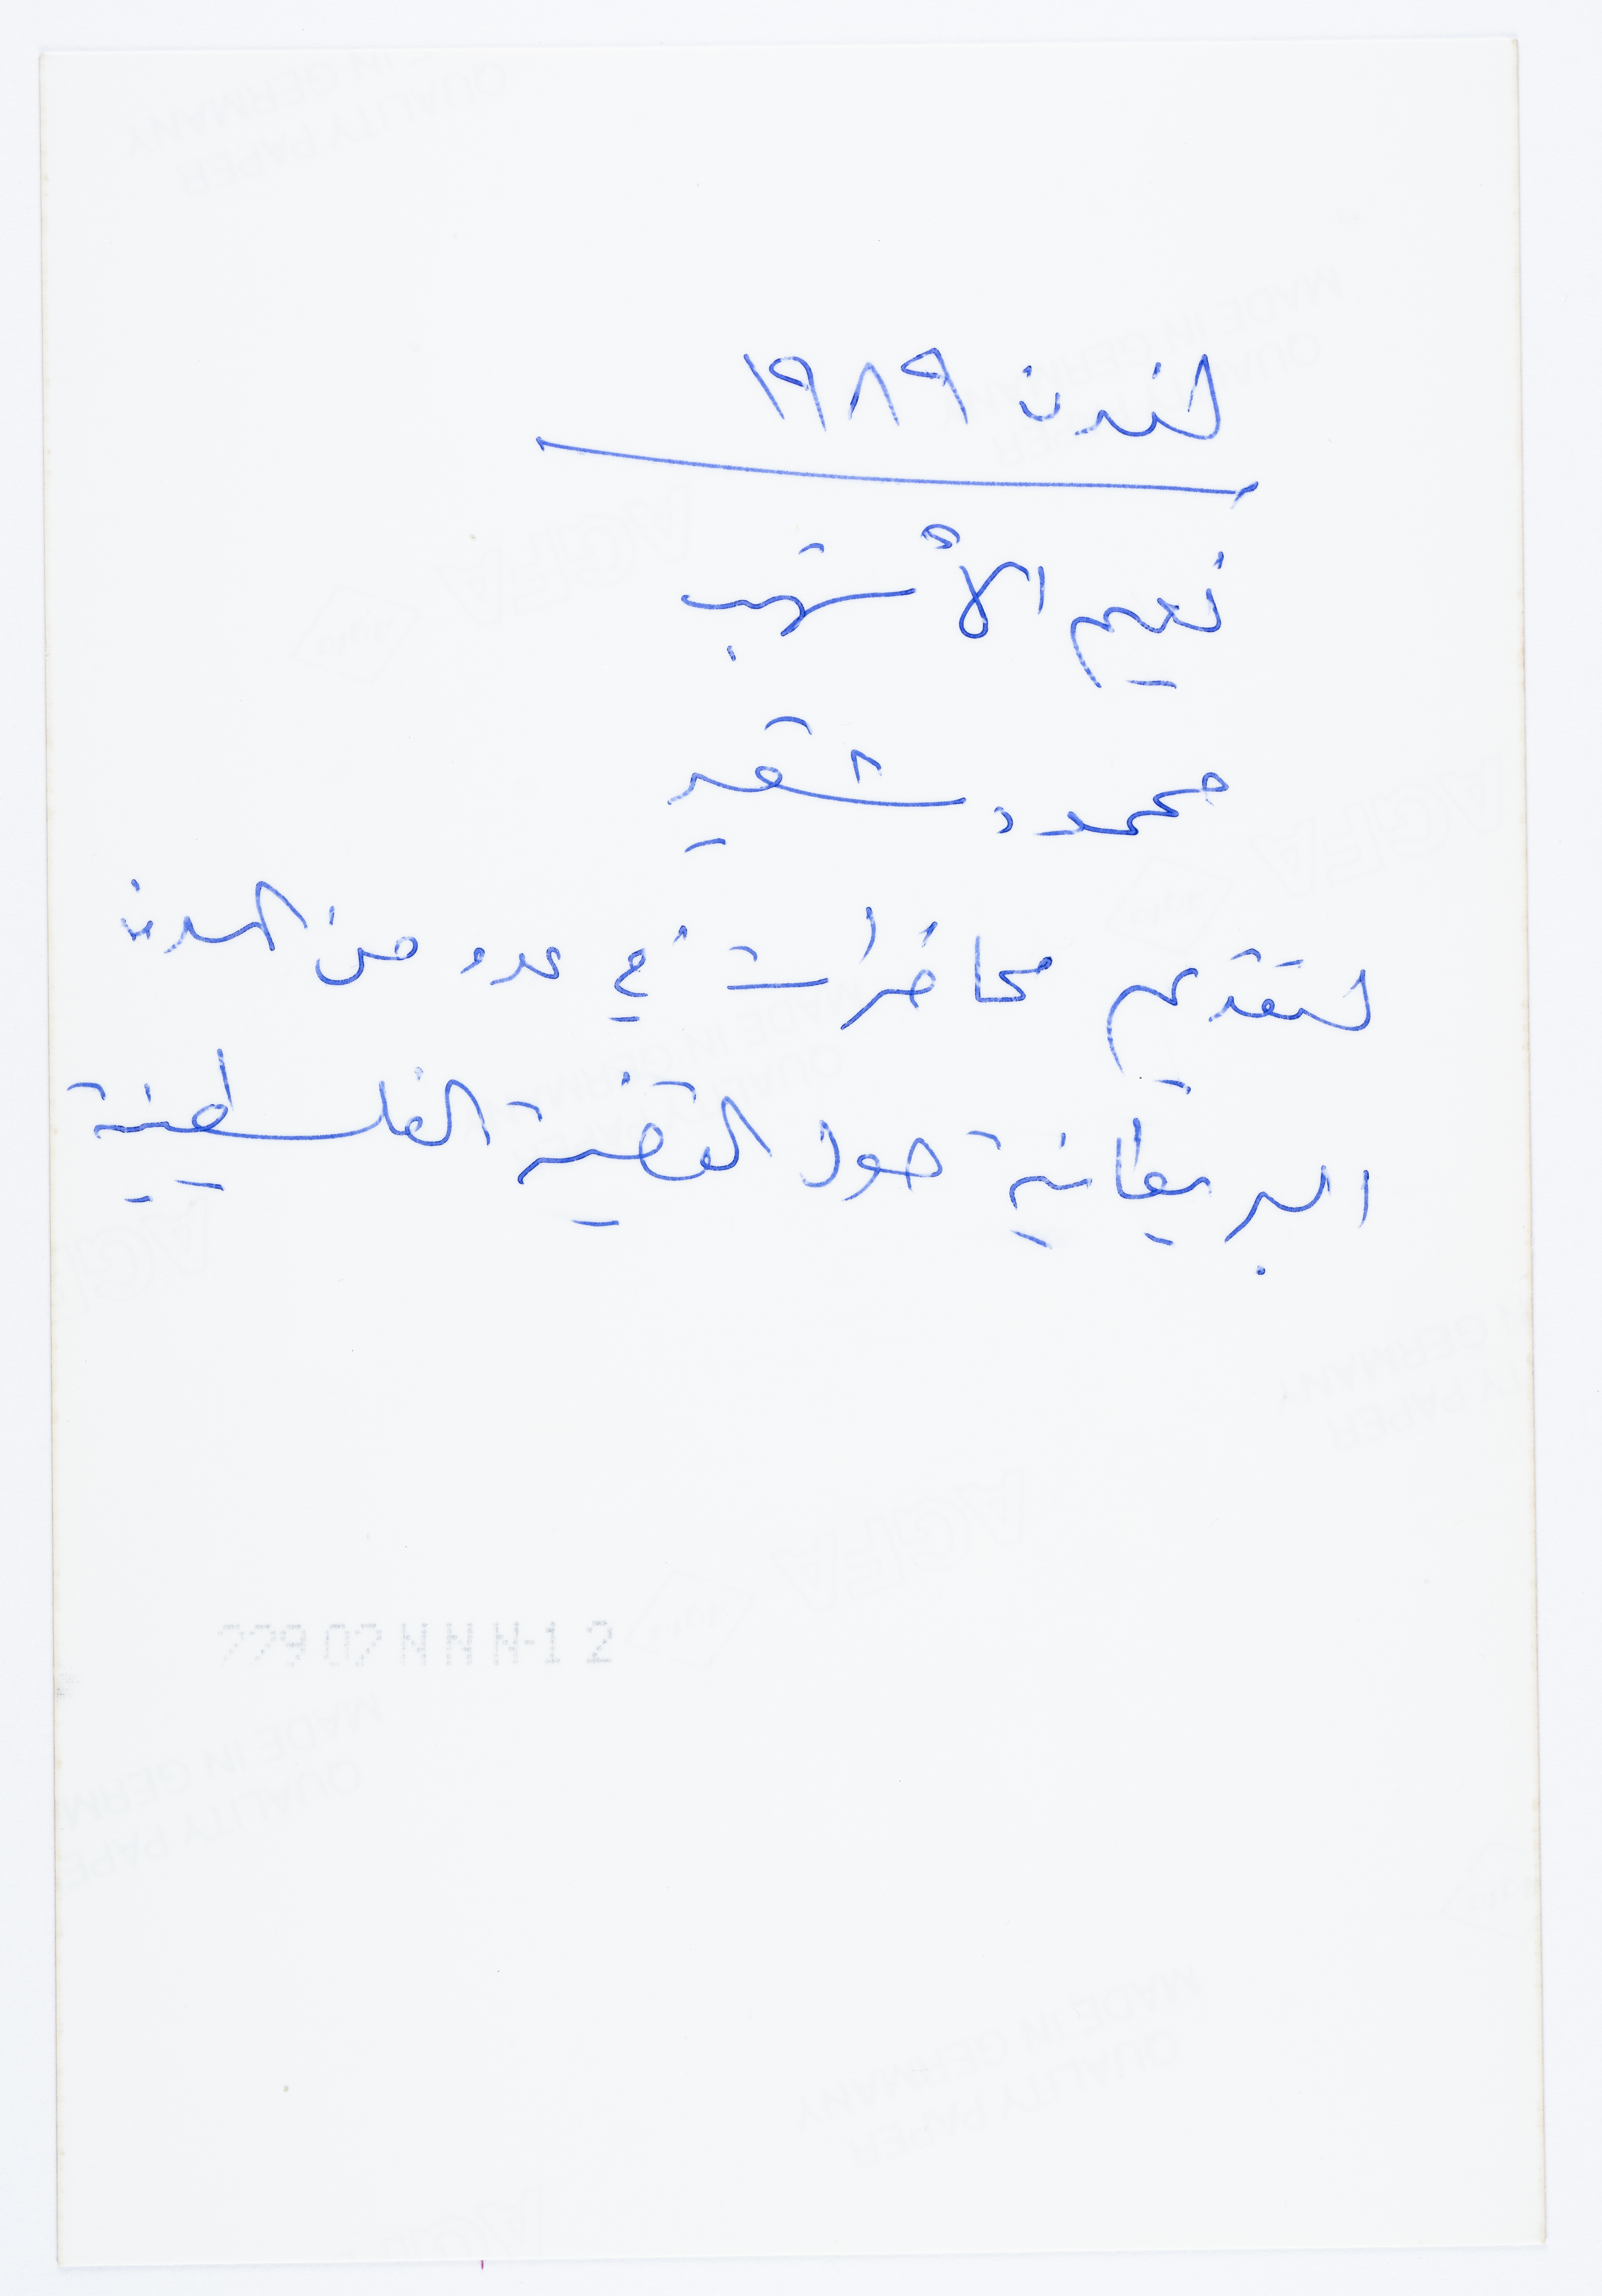 لندن ١٩٨٩
نعيم الأشهب
محمود شقير
لتقديم محاضرات في عدد من المدن
البريطانية حول القضية الفلسطينية
AGFA
MADE IN GERMANY
QUALITY PAPER